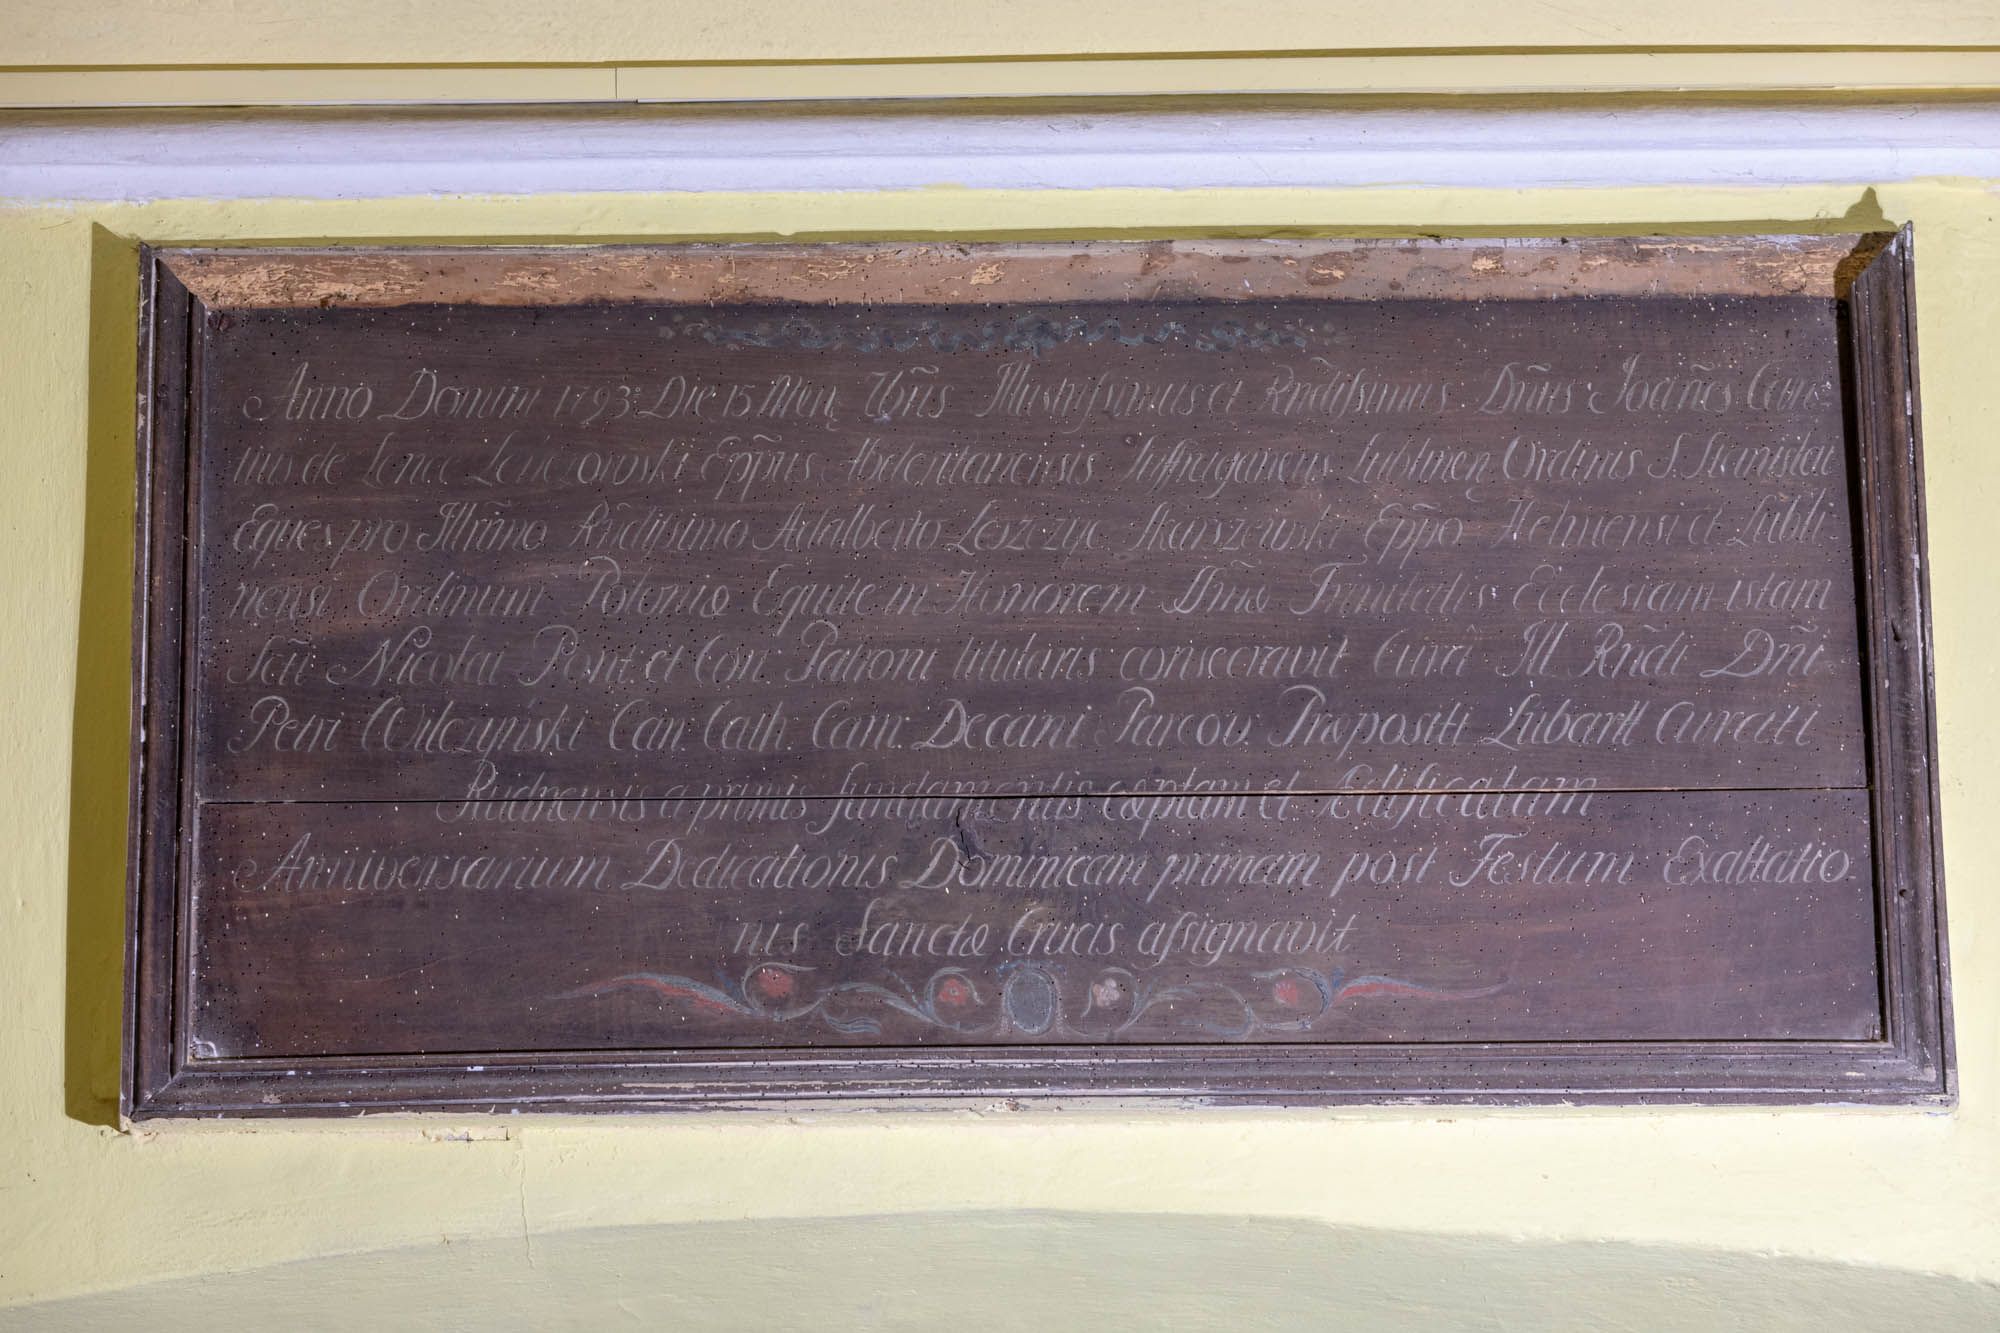 Anno Domini 1793: Die 15 Men 7bris Illustrissimus et Rndissimus Dnus Joañes Can
tius de Lencze Lenczowski Eppus Abderitanensis Suffraganeus Lublinen Ordinis S. Stanislai
Eques pro Illrmo Rndissimo Adalberto Leszczyc Skarszewski Eppo Helmensi et Lubli-
nensi Ordinum Poloniæ Equite in Honorem Dñæ Trinitatis Ecclesiam istam
Scti Nicolai Pont. et Con. Patroni titularis consecravit Curâ Ill Rndi Dñi
Petri Wilczyński Can. Cath. Cam. Decani Parcov. Præpositi Lubartt Curatt
Rudnensis a primis fundamentis cæptam et Ædificatam
Anniversarium Dedicationis Dominicam primam post Festum Exaltatio-
nis Sanctæ Crucis assignavit